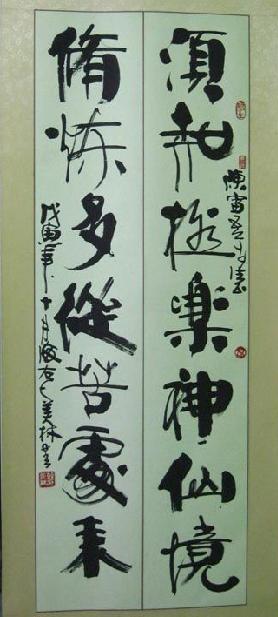 須知極樂神仙境
脩煉多從苦處來
戊寅年十月 美林